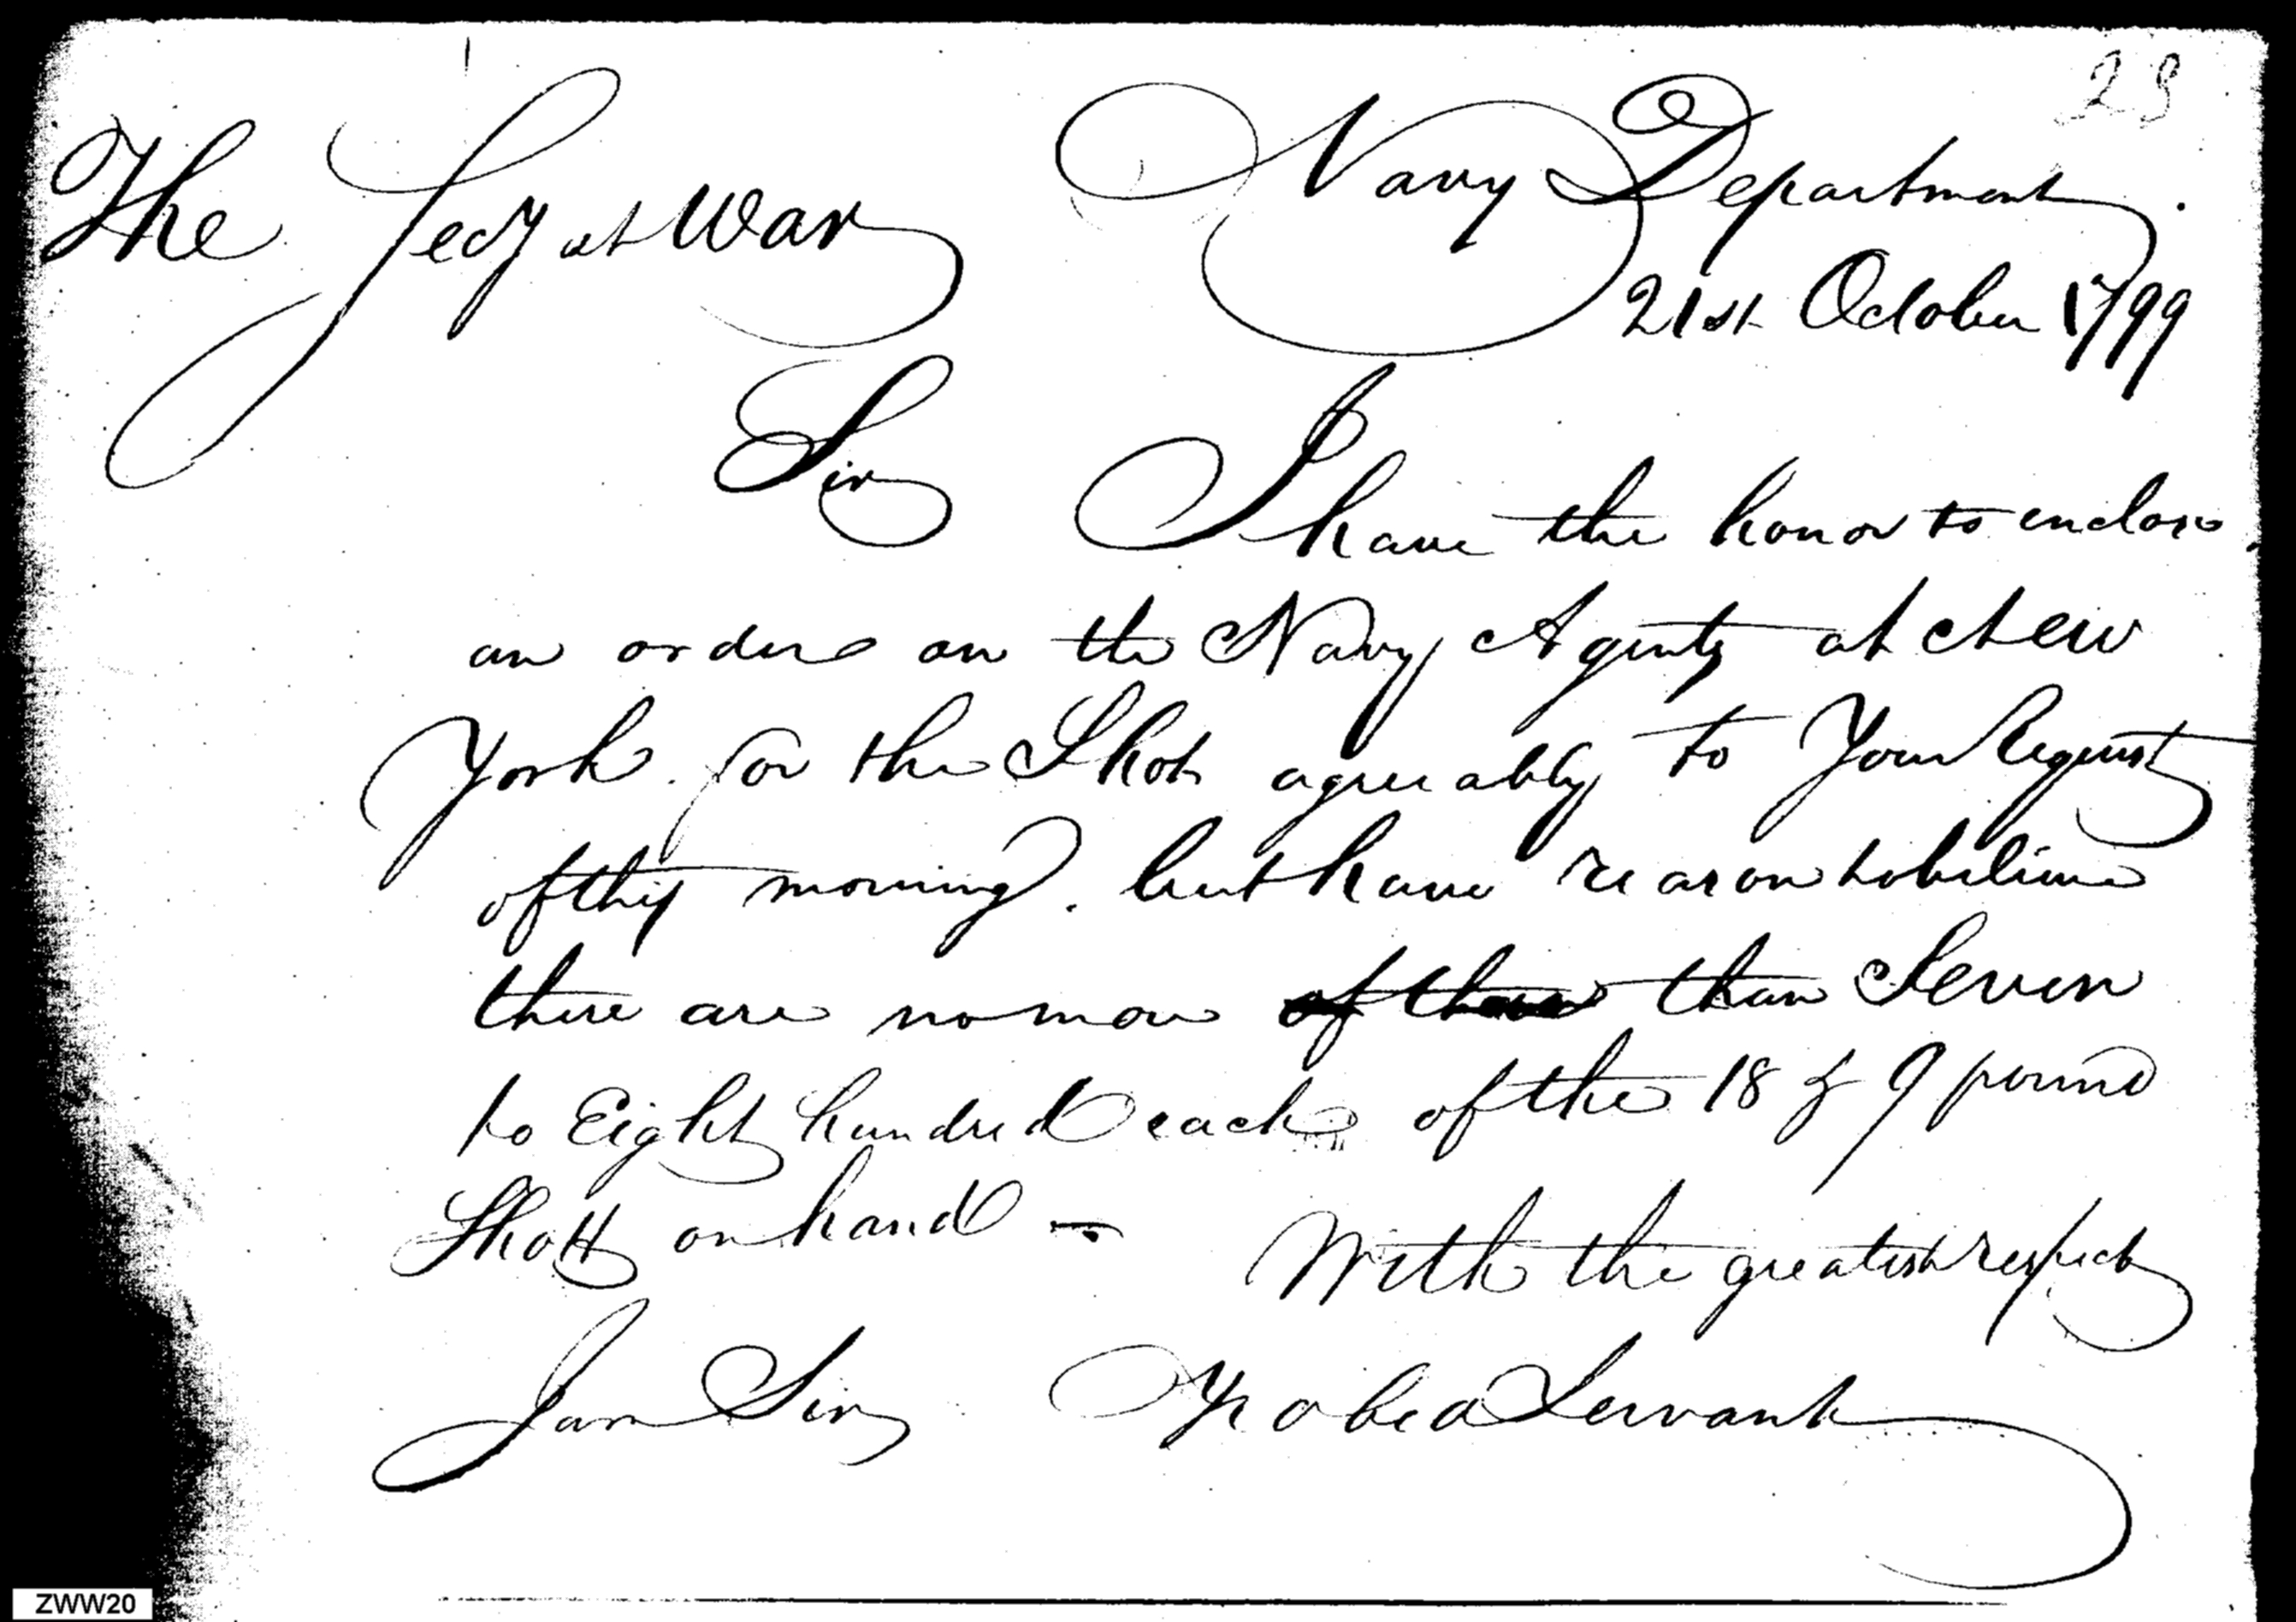 23
The Secy at War
Navy Department.
21st October 1799
Sir I have the honor to enclose
an order on the Navy Agents at New
York. for the Shot agreeably to Your Request
of this morning. but have reason to believe
there are no more of these than Seven
to Eight hundred each of the 18 & 9 pound
Shott on hand —
With the greatest respect
I am Sir Yr obed Servant
ZWW20